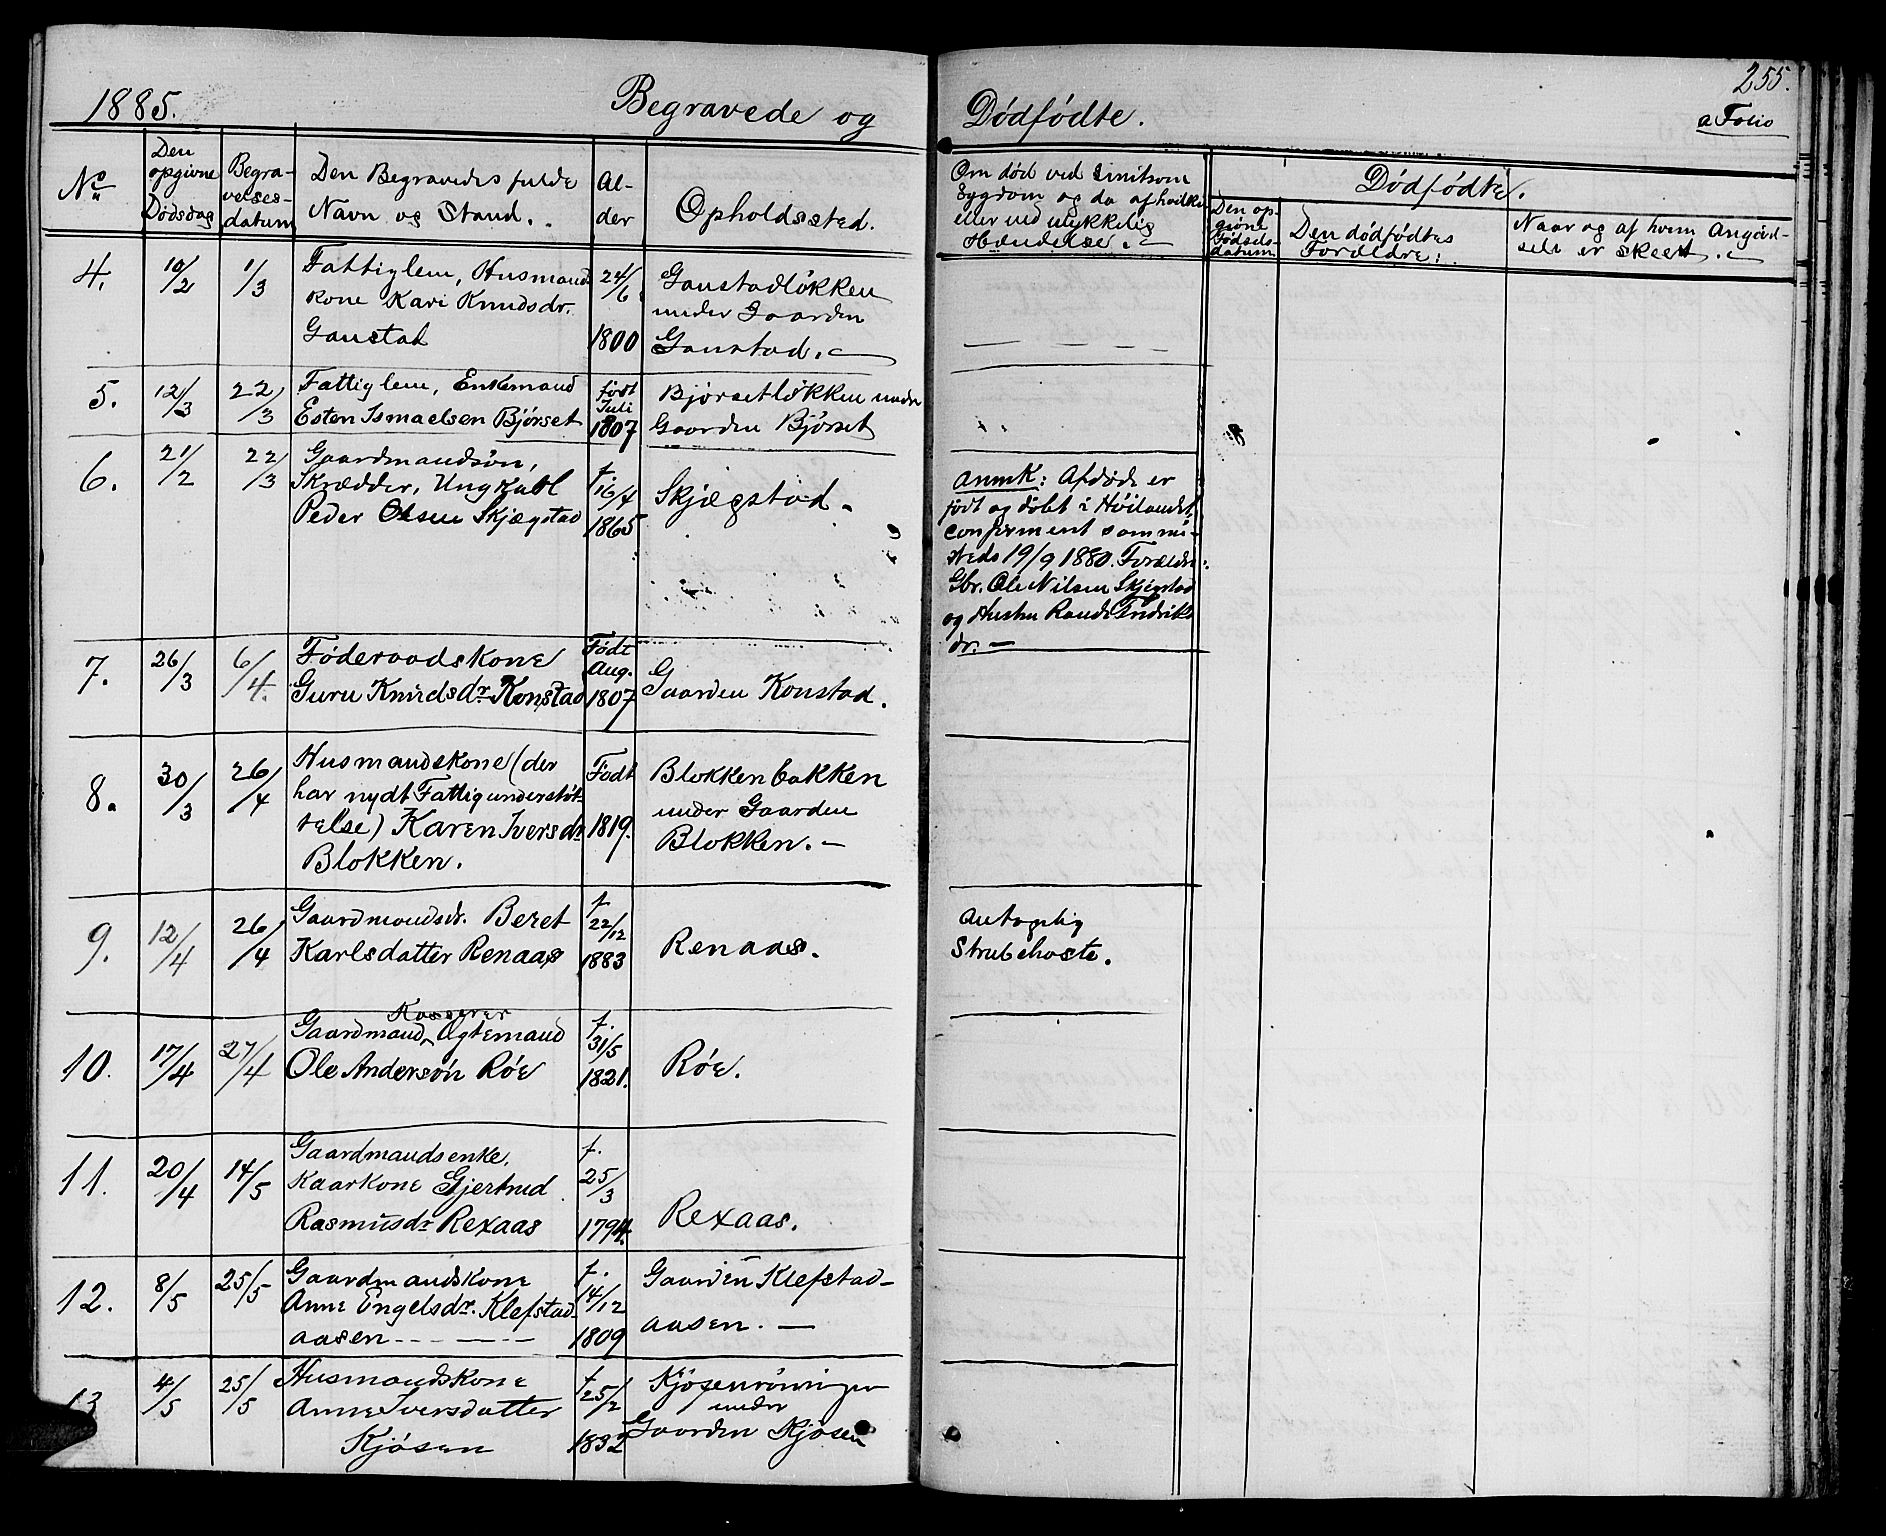 1885.
Begravede og
Dødfødte.
255.
a Folio
No
Den
opgivne
Dødsdag
Begra-
velses-
datum
Den Begravedes fulde
Navn og Stand.
Al-
der
Opholdssted.
Om død ved smitsom
Sygdom og da af hvilken
eller ved ulykkelig
Hændelse.
Dødfødte.
Den op-
givne
Fødsels-
datum
Den dødfødtes
Forældre:
Naar og af hvem Angivel-
sen er skeet.
4.
10/2
1/3
Fattiglem, Husmands
kone Kari Knudsdr.
Gaustad
24/6
1800
Gaustadløkken
under Gaarden
Gaustad.
5.
12/3
22/3
Fattiglem, Enkemand
Esten Ismaelsen Bjørset
født
Juli
1807
Bjørsetløkken under
Gaarden Bjørset
6.
21/2
22/3
Gaardmandsøn,
Skrædder, Ungkarl
Peder Olsen Skjægstad
f.
16/4
1865
Skjægstad.
Anmk: Afdøde er
født og døbt i Høilandet,
confirmeret sammen-
steds 19/9 1880. Forældre:
Gbr. Ole Nilsen Skjegstad
og Hustru Randi Fredriks
dr.
7.
26/3
6/4.
Føderaadskone
Guru Knudsdr Konstad
Født
Aug.
1807
Gaarden Konstad.
8.
30/3
26/4
Husmandskone (der
har nydt Fattigunderstøt-
telse) Karen Iversdr
Blokken.
Født
1819.
Blokkenbakken
under Gaarden
Blokken.
9.
12/4
26/4
Gaardmandsdr. Beret
Karlsdatter Renaas
f
22/12
1883
Renaas.
Antagelig
Strubehoste.
10.
17/4
27/4
Kasserer
Gaardmand, Ægtemand
Ole Andersøn Røe
f.
31/5
1821.
Røe.
11.
20/4
14/5
Gaardmandsenke,
Kaarkone Gjertrud
Rasmusdr Rexaas
f.
25/3
1794.
Rexaas.
12.
8/5
25/5
Gaardmandskone
Anne Engelsdr. Klefstad-
aasen
f.
14/12
1809
Gaarden Klefstad-
aasen.
13
4/5
25/5
Husmandskone
Anne Iversdatter
Kjøsen
f
25/2
1832
Kjøsenrønningen
under
Gaarden Kjøsen